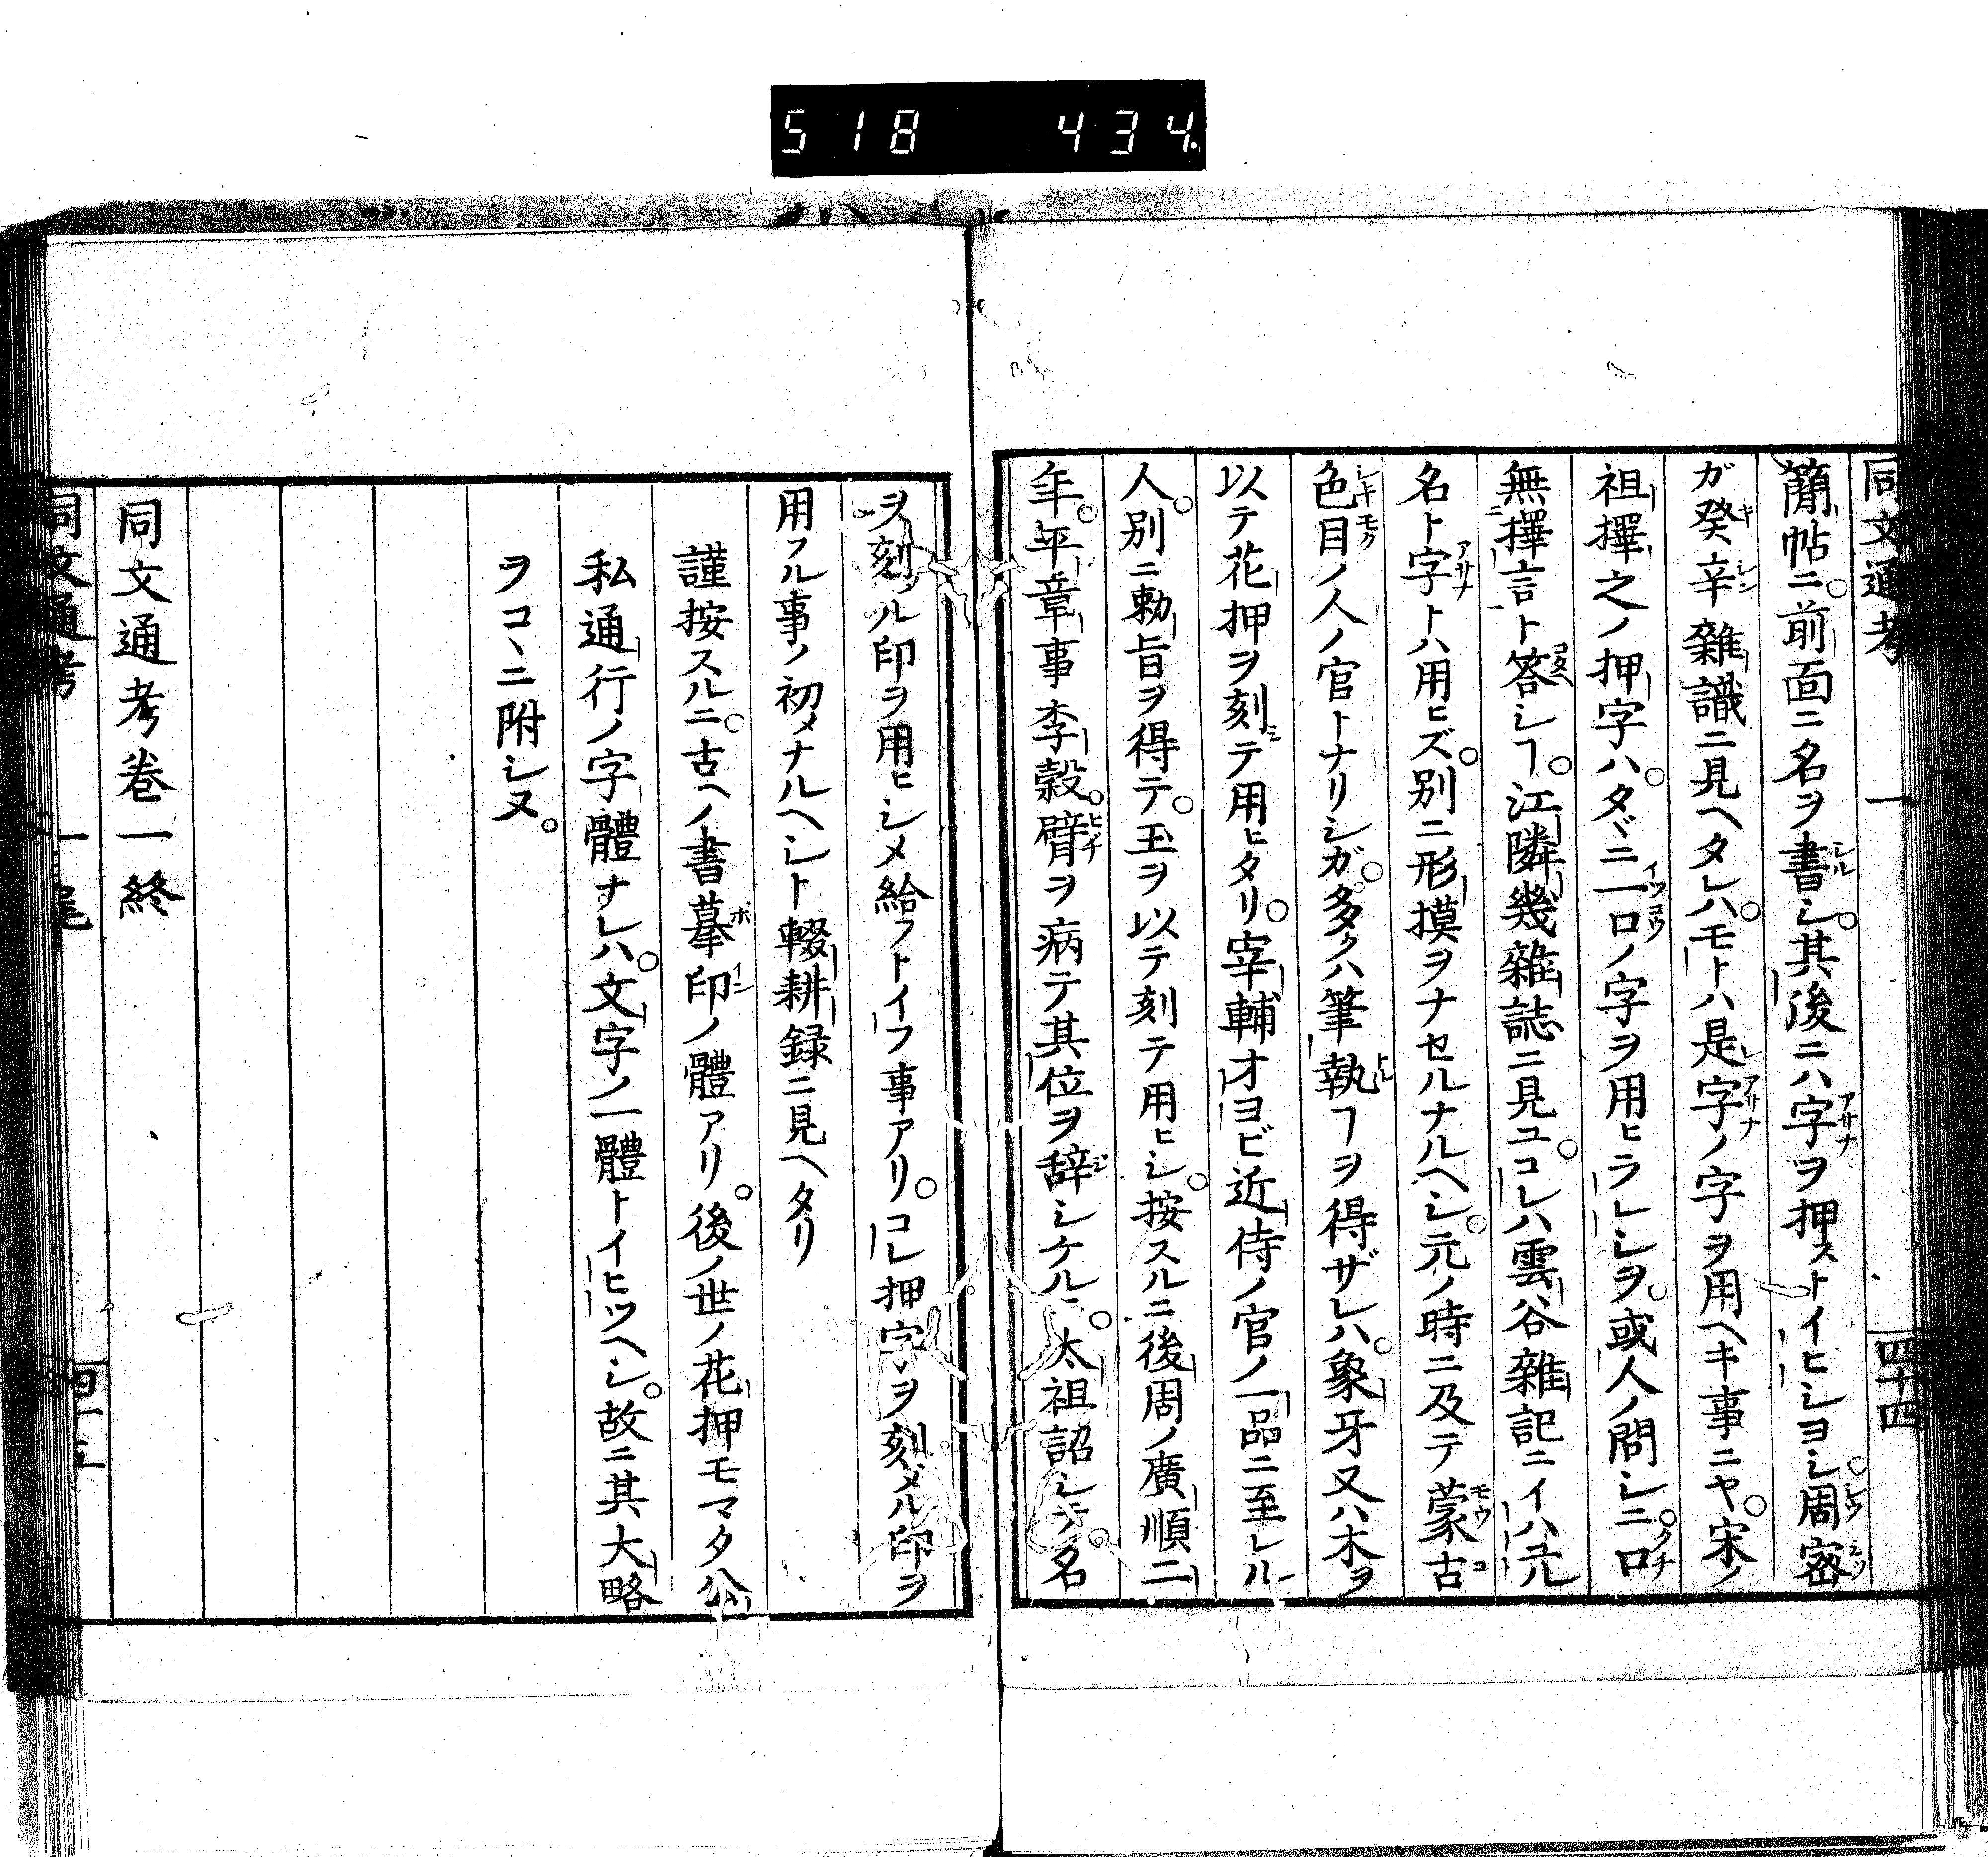 518 434.
同文通考 一 四十四
簡帖ニ。前面ニ名ヲ書シ。其後ニハ字ヲ押ストイヒシヨシ。周密
ガ癸辛雜識ニ見ヘタレハ。モトハ是字ノ字ヲ用ヘキ事ニヤ。宋ノ
祖擇之ノ押字ハ。タヾニ一口ノ字ヲ用ヒラレシヲ。或人ノ問シニ。口
無擇言ト答シヿ。江隣幾雜誌ニ見ユ。コレハ雲谷雜記ニイハ元
名ト字トハ用ヒズ。別ニ形摸ヲナセルナルヘシ。元ノ時ニ及テ蒙古
色目ノ人ノ官トナリシガ。多クハ筆執ヿヲ得ザレハ。象牙又ハ木ヲ
以テ花押ヲ刻テ用ヒタリ。宰輔オヨビ近侍ノ官ノ一品ニ至レル
人。別ニ勅旨ヲ得テ。玉ヲ以テ刻テ用ヒシ。按スルニ後周ノ廣順二
年。平章事李穀。臂ヲ病テ其位ヲ辞シケルニ。太祖詔シテ。名
ヲ刻メル印ヲ用ヒシメ給フトイフ事アリ。コレ押字ヲ刻メル印ヲ
用フル事ノ初メナルヘシト輟耕録ニ見ヘタリ
謹按スルニ。古ヘノ書摹印ノ體アリ。後ノ世ノ花押モマタ公
私通行ノ字體ナレハ。文字ノ一體トイヒツヘシ。故ニ其大略
ヲコヽニ附シヌ。
同文通考巻一終
同文通考 一尾 四十五